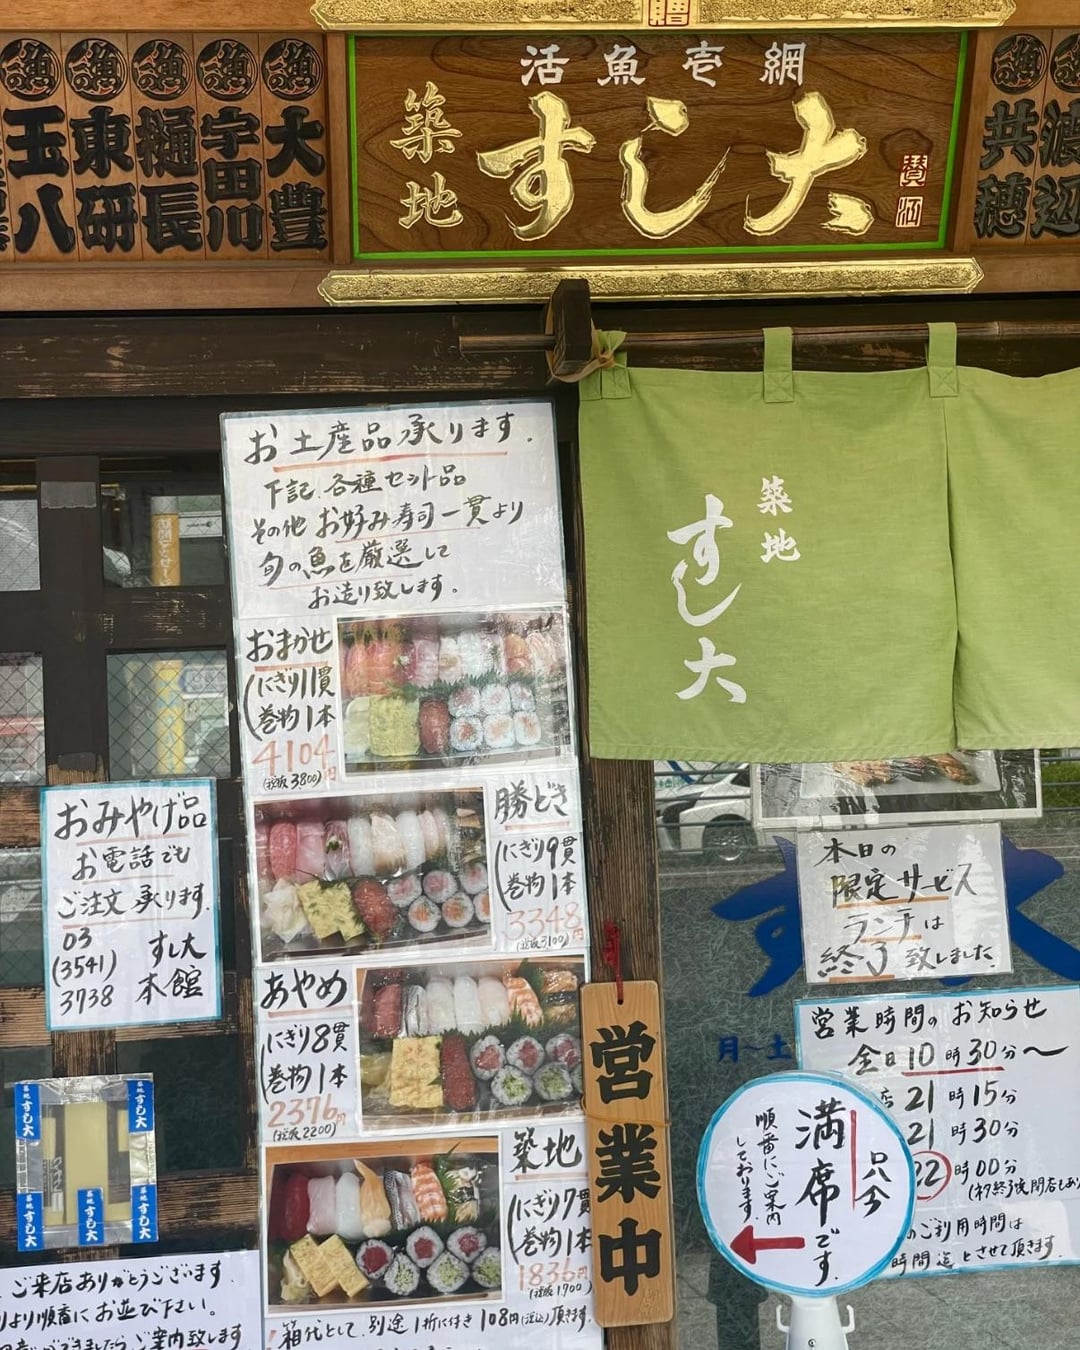 活魚壱網
築地
すし大
玉八
東研
樋長
宇田川
大豊
共穂
濃辺
築地
すし大
お土産品承ります.
下記、各種セット品
その他 お好み寿司一貫より
旬の魚を厳選して
お造り致します。
おまかせ
(にぎり11貫
巻物1本
4104円
(税抜3800)
勝どき
(にぎり9貫
巻物1本
3348円
(税抜3100)
あやめ
(にぎり8貫
巻物1本
2376円
(税抜2200)
築地
(にぎり7貫
巻物1本
1836円
(税抜1700)
箱代として、別途1折に付き108円(税込)頂きます.
おみやげ品
お電話でも
ご注文承ります.
03
(3541)
3738
すし大
本館
築地すし大
築地すし大
築地すし大
築地すし大
築地すし大
ご来店ありがとうございます.
より順番にお並び下さい。
ご案内致します
営業中
本日の
限定サービス
ランチは
終了致しました
月~土
営業時間のお知らせ
全日10時30分~
21時15分
21時30分
22時00分
ご利用時間は
時間迄とさせて頂きます.
只今
満席です.
順番にご案内
しております.